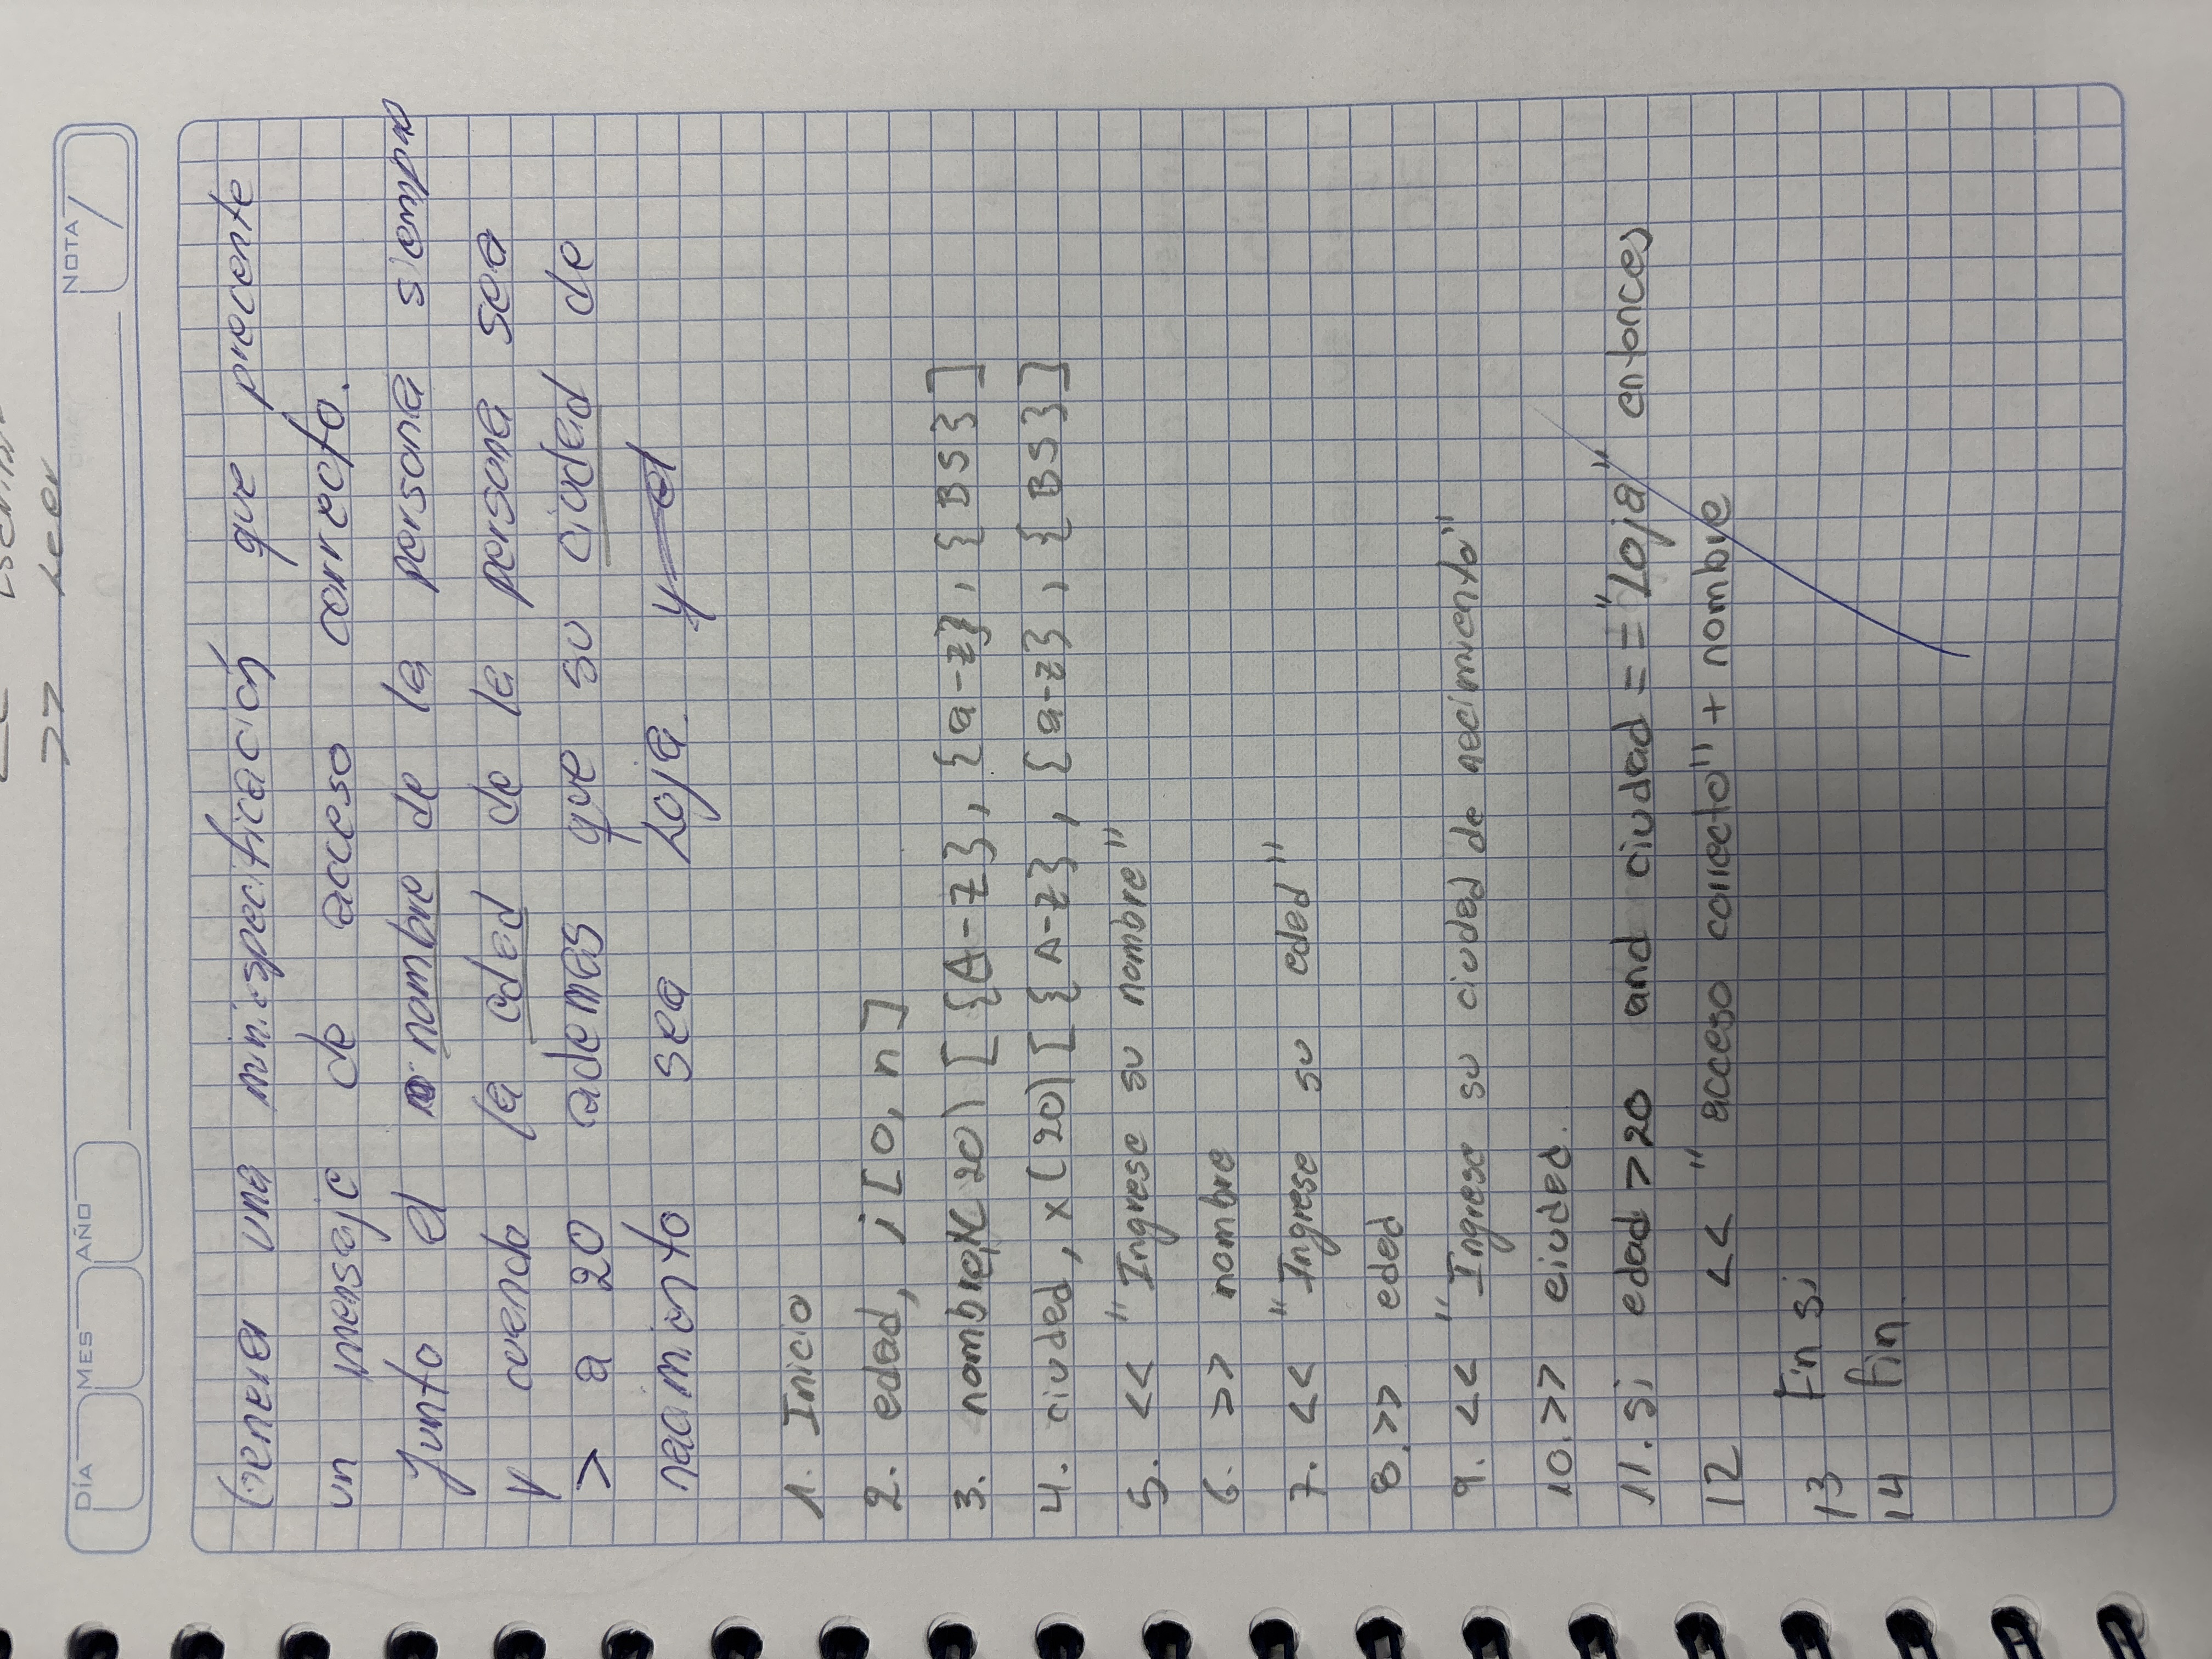 << Escribir
>> Leer
DÍA MES AÑO NOTA
Genera una miniespecificación que precente
un mensaje de acceso correcto.
Junto el nombre de la persona siempre
y cuando la edad de la persona sea
> a 20 ademas que su ciudad de
nacimiento sea Loja. y el
1. Inicio
2. edad, i [0, n]
3. nombre, x(20) [{A-Z}, {a-z}, {BS}]
4. ciudad, x(20) [{A-Z}, {a-z}, {BS}]
5. << "Ingrese su nombre"
6. >> nombre
7. << "Ingrese su edad"
8. >> edad
9. << "Ingrese su ciudad de nacimiento"
10. >> ciudad.
11. si edad > 20 and ciudad == "Loja" entonces
12 << "acceso correcto" + nombre
13 Fin si
14 fin.